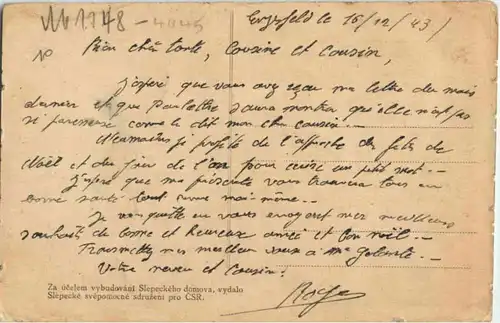 le 16/12/43
Bien chère tante, Cousine et Cousin,
J'espère que vous avez reçu ma lettre du mois
dernier et que
se paresseuse comme le dit mon cher cousin.
Néanmoins je profite de l'approche des fêtes de
Noël et du jour de l'an pour écrire un petit mot.
J'espère que ma présente vous trouvera tous en
bonne santé tout comme moi-même.
Je vous quitte en vous envoyant mes meilleurs
souhaits de bonne et heureuse année et bon noël.
Transmettez mes meilleurs vœux à Mme
Votre neveu et cousin.
Roger
Za účelem vybudování Slepeckého domova, vydalo
Slepecké svépomocné sdružení pro ČSR.